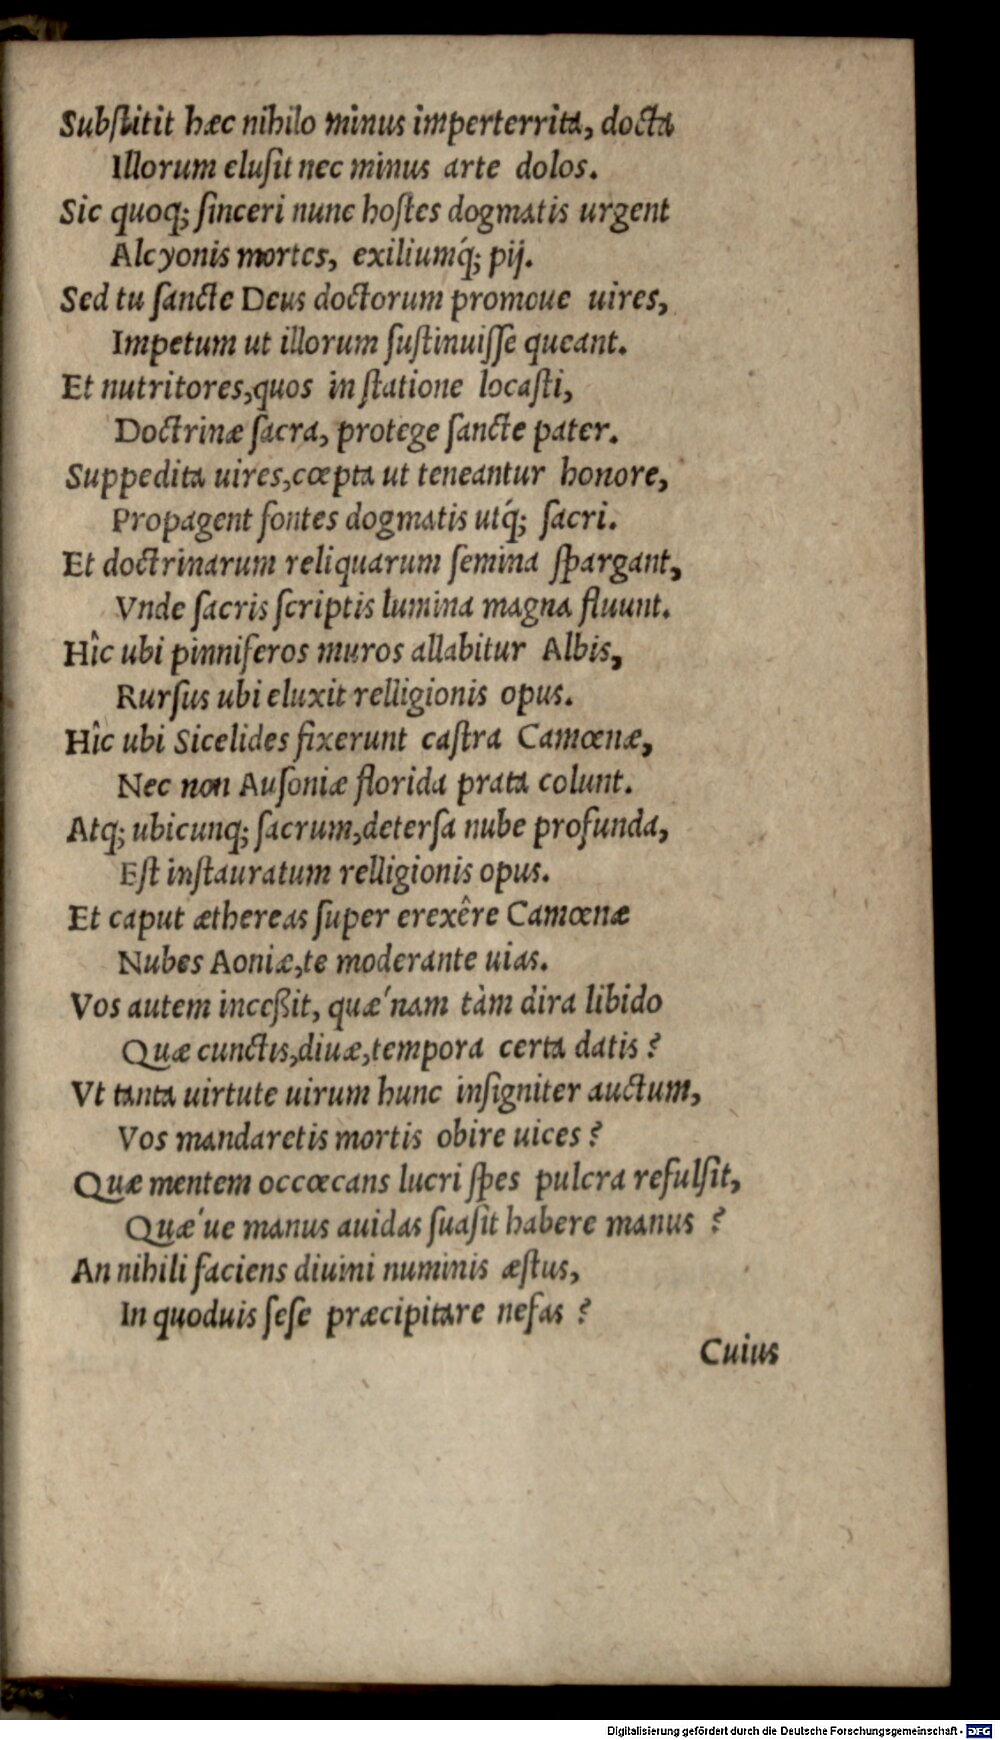 Subſtitit hæc nihilo minus imperterrita, docta
Illorum eluſit nec minus arte dolos.
Sic quoq; ſinceri nunc hoſtes dogmatis urgent
Alcyonis mortes, exiliumq́; pij.
Sed tu ſancte Deus doctorum promoue uires,
Impetum ut illorum ſuſtinuiſſe queant.
Et nutritores,quos in ſtatione locaſti,
Doctrinæ ſacra, protege ſancte pater.
Suppedita uires,cœpta ut teneantur honore,
Propagent fontes dogmatis utq́; ſacri.
Et doctrinarum reliquarum ſemina ſpargant,
Vnde ſacris ſcriptis lumina magna fluunt.
Hîc ubi pinniferos muros allabitur Albis,
Rurſus ubi eluxit relligionis opus.
Hîc ubi Sicelides fixerunt caſtra Camœnæ,
Nec non Auſoniæ florida prata colunt.
Atq; ubicunq; ſacrum,deterſa nube profunda,
Eſt inſtauratum relligionis opus.
Et caput æthereas ſuper erexêre Camœnæ
Nubes Aoniæ,te moderante uias.
Vos autem inceßit, quæ´nam tàm dira libido
Quæ cunctis,diuæ,tempora certa datis?
Vt tanta uirtute uirum hunc inſigniter auctum,
Vos mandaretis mortis obire uices?
Quæ mentem occœcans lucri ſpes pulcra refulſit,
Quæ´ue manus auidas ſuaſit habere manus?
An nihili faciens diuini numinis æſtus,
In quoduis ſeſe præcipitare nefas?
Cuius
Digitalisierung gefördert durch die Deutsche Forschungsgemeinschaft - DFG